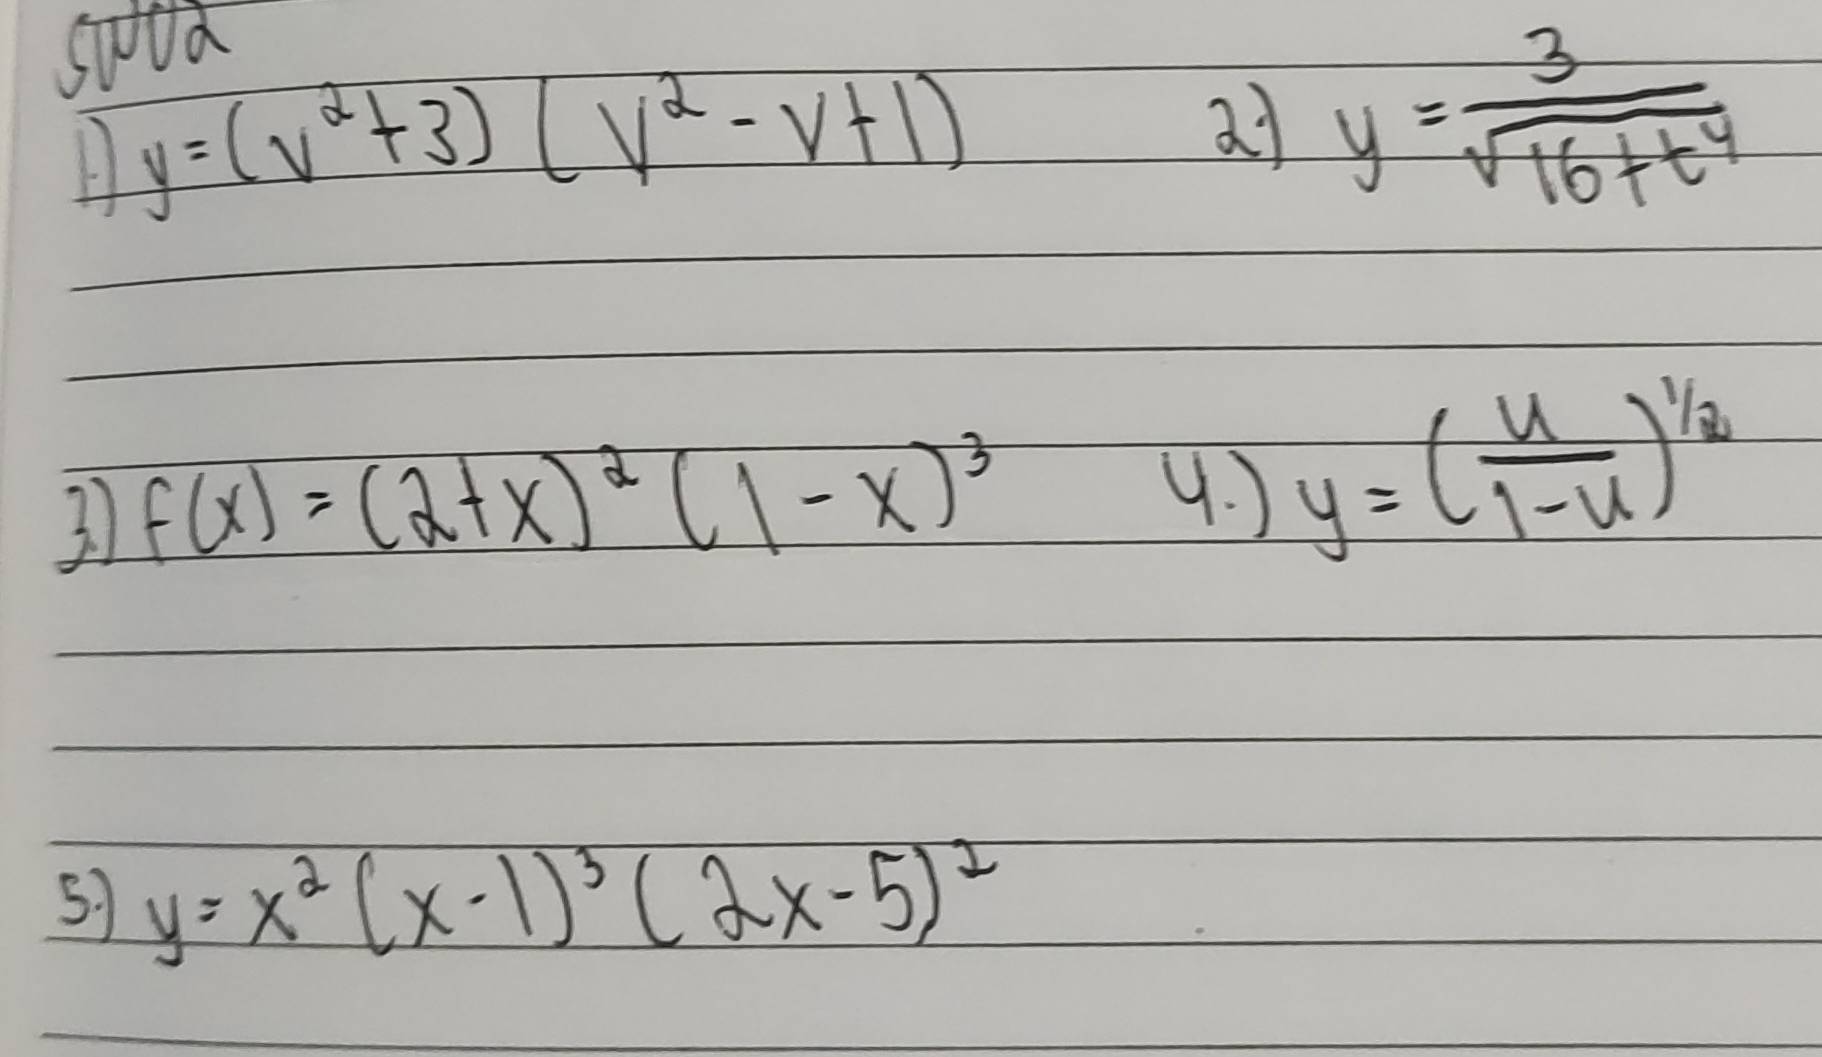 1.) y = (v² + 3) (v² - v + 1)
2.) y = 3/√(16 + t⁴)
3.) f(x) = (2 + x)² (1 - x)³
4.) y = (u/(1 - u))^1/2
5.) y = x² (x - 1)³ (2x - 5)²